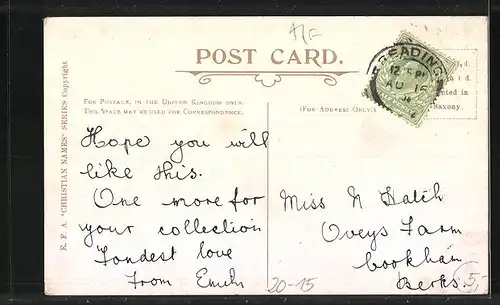 A/F
POST CARD.
READING
12 15 PM
AU 16
E.F.A. "CHRISTIAN NAMES" SERIES Copyright
FOR POSTAGE, IN THE UNITED KINGDOM ONLY,
THIS SPACE MAY BE USED FOR CORRESPONDENCE.
(FOR ADDRESS ONLY.)
nted in
Saxony.
Hope you will
like this.
One more for
your collection
Fondest love
From
Miss N Hatch
Oveys Farm
Cookham
Berks.
20-15
5,-